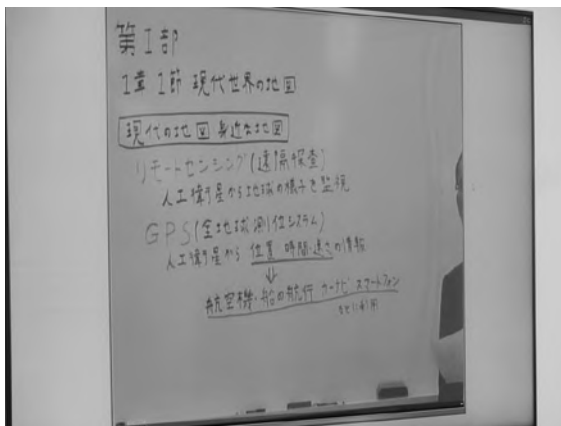 第I部
1章 1節 現代世界の地図
現代の地図 身近な地図
リモートセンシング(遠隔探査)
人工衛星から地球の様子を監視
GPS(全地球測位システム)
人工衛星から 位置 時間・速さの情報
⇓
航空機・船の航行 カーナビ スマートフォン
などに利用